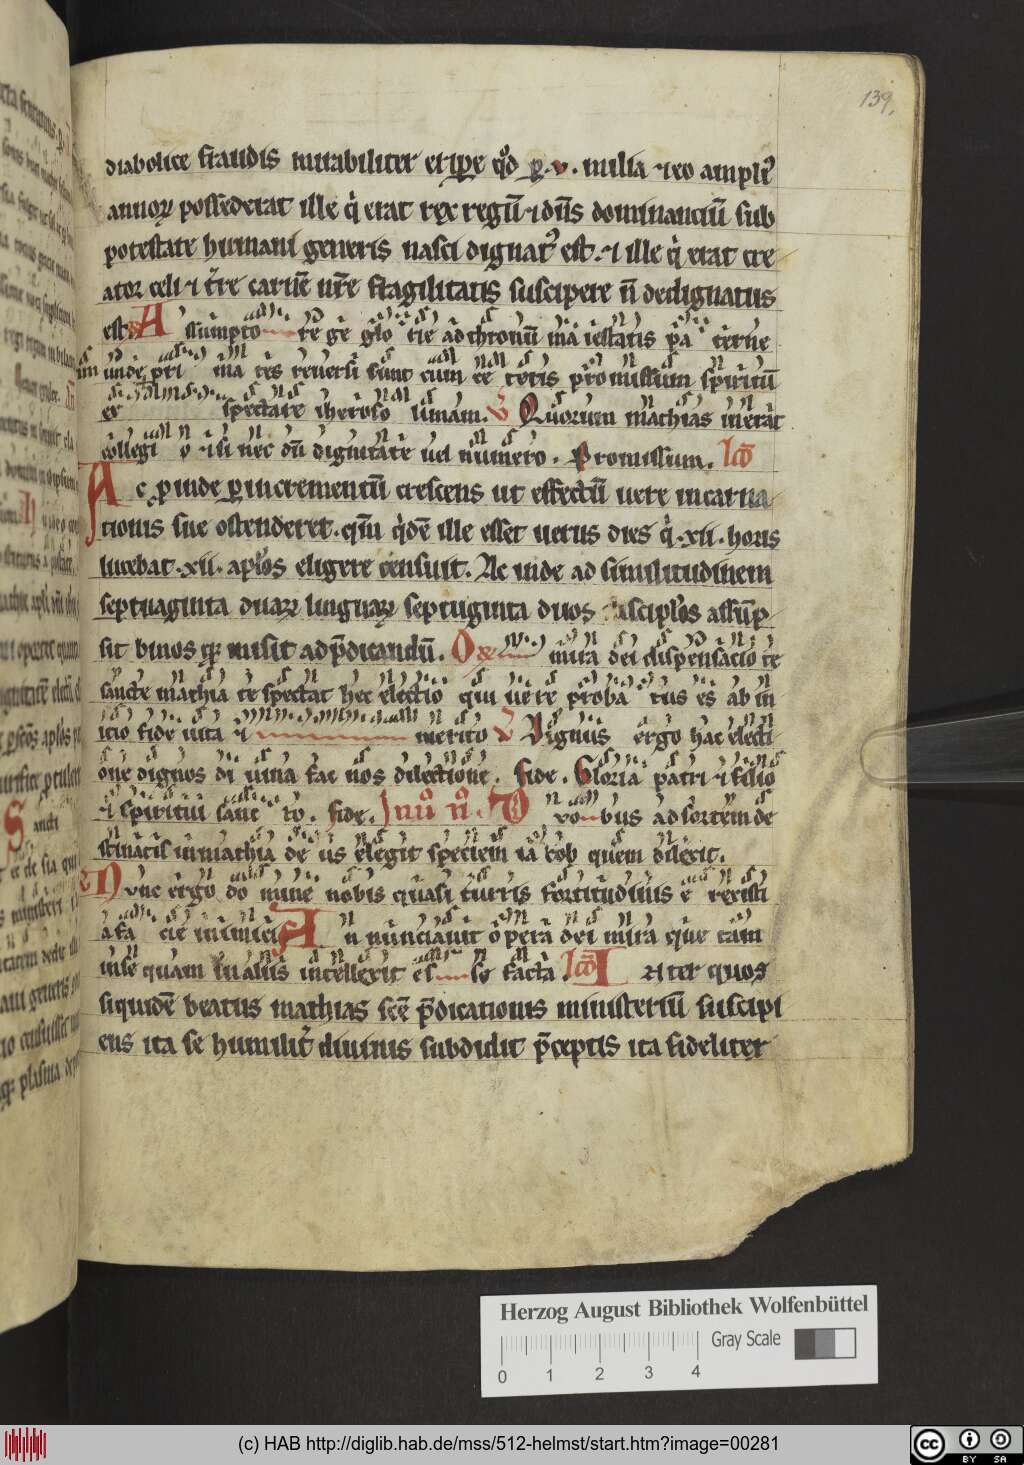 139.
diabolice fraudis mirabiliter eripe q̊d p̲.v. milia ⁊ eo ampli᷒
annoꝝ possederat ille q̇ erat rex regū ⁊ dn̄s dominanciū sub
potestate humani generis nasci dignat᷒ est. ⁊ ille q̇ erat cre
ator celi ⁊ t̄re carnē nr̄e fragilitatis suscipere n̄ dedignatus
est. A ssumpto re ge glo rie ad thronū ma iestatis pa terne
unde pri ma tes reuersi sunt cum ce teris pro missum spiritū
ex spectare iheroso limam. V Quorum mathias inerat
collegi o ⁊ si nec dū dignitate uel numero. Promissum. lc̄o
Ac ꝑinde ꝑ incrementū crescens ut effectū uere incarna
tionis sue ostenderet. qm̄ q̇dē ille esset uerus dies q̇ .xii. horis
lucebat .xii. apl̄os eligere censuit. Ac inde ad similitudinem
septuaginta duaꝝ linguaꝝ septuginta duos discipl̄os assūp
sit binos qꝫ misit ad p̄dicandū. O mira dei dispensacio te
sancte mathia te spectat hec electio qui uere proba tus es ab in
icio fide uita ⁊ merito V Dignus ergo hac electi
one dignos di uina fac nos dilectione. Fide. Gloria patri ⁊ filio
⁊ spiritui sanc to. Fide. In iiº n. D uo bus ad sortem de
stinatis in mathia de us elegit speciem iacob quem dilexit.
Nunc ergo do mine nobis quasi turris fortitudinis e rexisti
a fa cie inimici A n nunciauit opera dei mira que tam
in se quam in aliis intellexit es se facta lc̄o I giter quos
siquidē beatus mathias sc̄e p̄dicationis ministeriū suscipi
ens ita se humilit᷒ diuinis subdidit p̄ceptis ita fideliter
Herzog August Bibliothek Wolfenbüttel
Gray Scale
0 1 2 3 4
(c) HAB http://diglib.hab.de/mss/512-helmst/start.htm?image=00281
cc BY SA